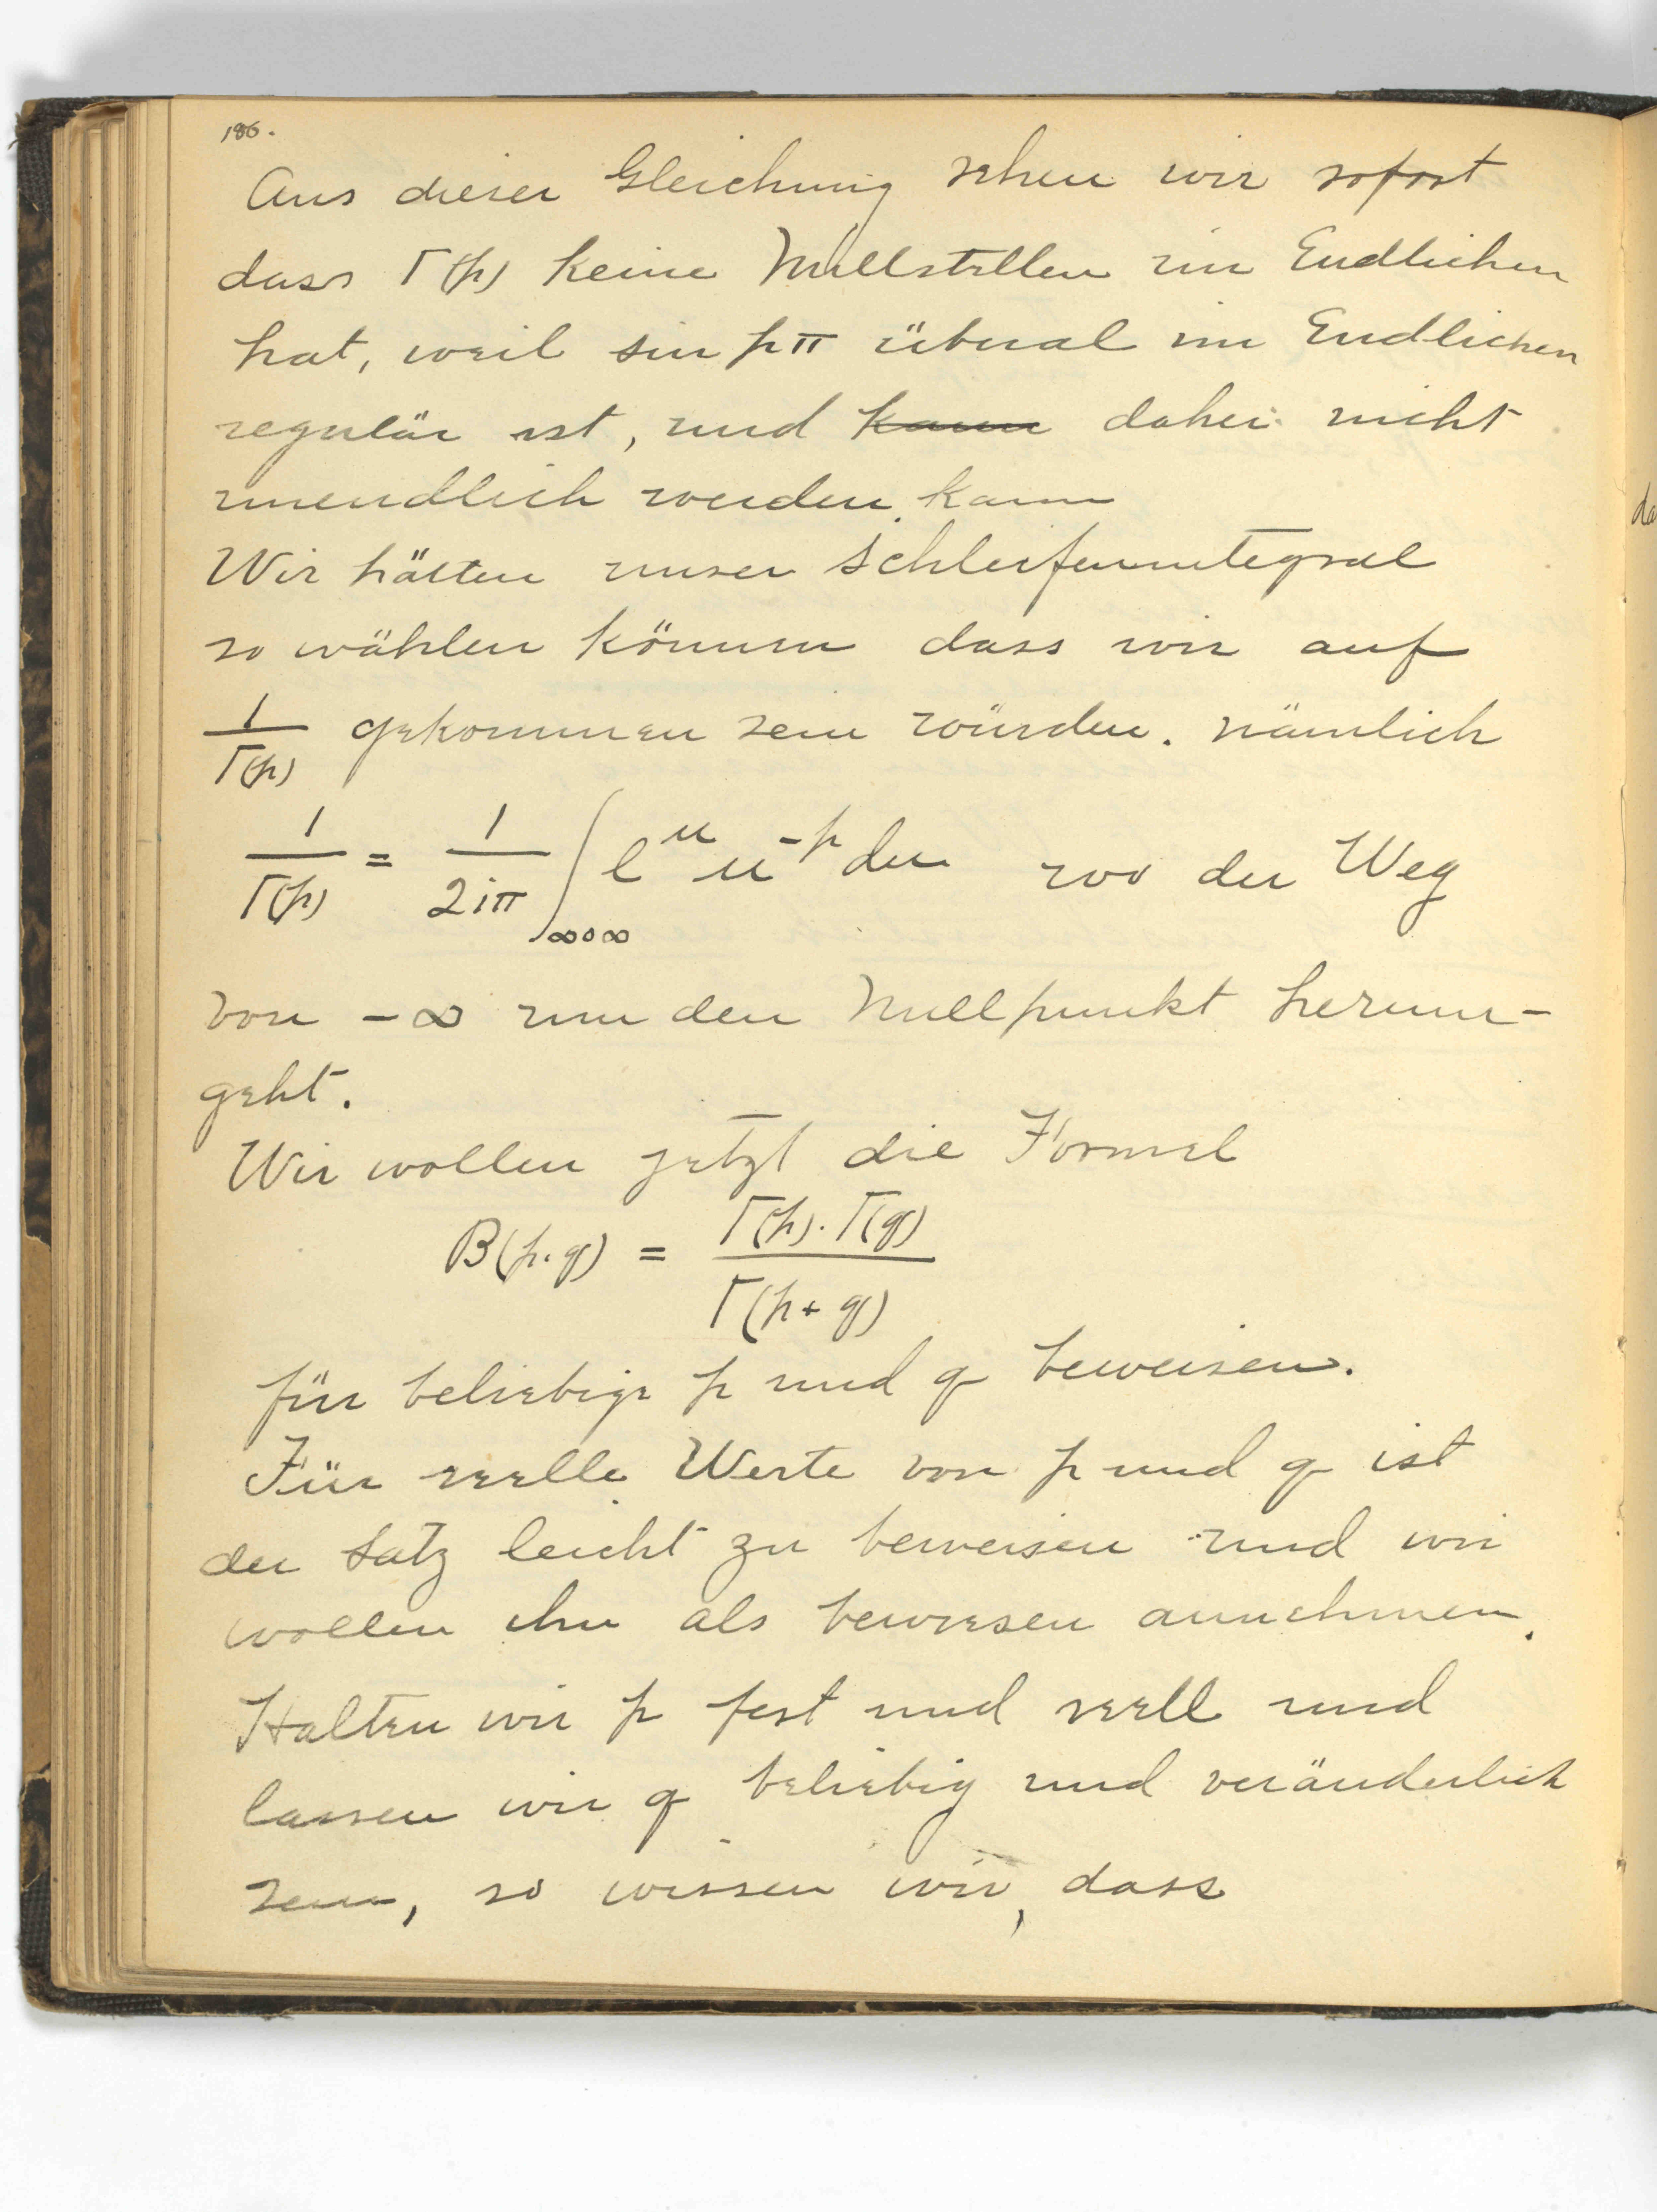 186.
Aus dieser Gleichung sehen wir sofort
dass Γ(p) keine Nullstellen im Endlichen
hat, weil sin pπ überal im Endlichen
regulär ist, und ~~kann~~ daher nicht
unendlich werden kann
Wir hätten unser Schleifenintegral
so wählen können dass wir auf
1/Γ(p) gekommen sein würden. nämlich
1/Γ(p) = 1/2iπ ∫_∞0∞ e^u u^-p du wo der Weg
von -∞ um den Nullpunkt herum-
geht.
Wir wollen jetzt die Formel
B(p.q) = Γ(p).Γ(q)/Γ(p+q)
für beliebige p und q beweisen.
Für reelle Werte von p und q ist
der Satz leicht zu beweisen und wir
wollen ihn als bewiesen annehmen.
Halten wir p fest und reell und
lassen wir q beliebig und veränderlich
sein, so wissen wir, dass
da